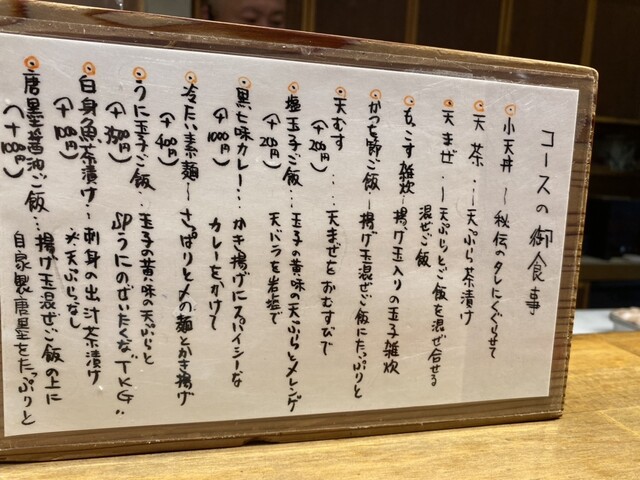 コースの御食事
小天丼 〜 秘伝のタレにくぐらせて
天茶…〜天ぷら茶漬け
天まぜ…〜天ぷらとご飯を混ぜ合せる
混ぜご飯
もこす雑炊〜揚げ玉入りの玉子雑炊
かつを節ご飯…揚げ玉混ぜご飯にたっぷりと
天むす…天まぜをおむすびで
(+200円)
塩玉子ご飯…玉子の黄味の天ぷらとメレンゲ
(+200円) 天バラを岩塩で
黒七味カレー…かき揚げにスパイシーな
(+1000円) カレーをかけて
冷たい素麺〜さっぱりと〆の麺とかき揚げ
(+400円)
うに玉子ご飯…玉子の黄味の天ぷらと
SPうにのぜいたくな"TKG"
白身魚茶漬け〜刺身の出汁茶漬け
(+100円) ※天ぷらなし
唐墨醤油ご飯…揚げ玉混ぜご飯の上に
(+100円) 自家製唐墨をたっぷりと